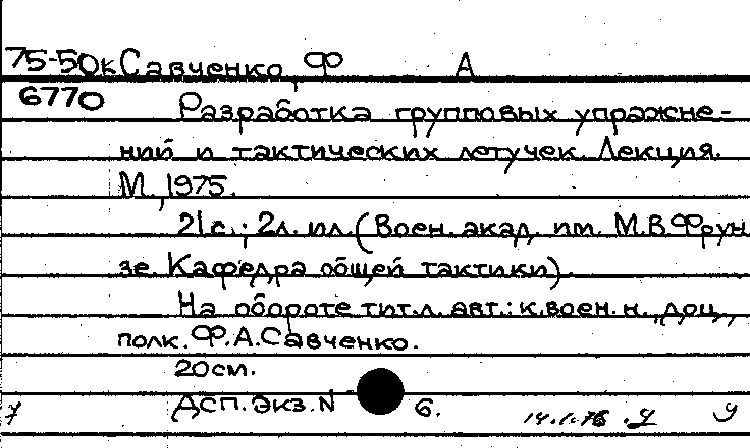 75-50к Савченко, Ф А
6770
Разработка групповых упражне-
ний и тактических летучек. Лекция.
М., 1975.
21с.; 2л. ил. (Воен. акад. им. М.В.Фрун
зе. Кафедра общей тактики)
На обороте тит.л. авт.: к.воен.н., доц.,
полк. Ф.А.Савченко.
20см.
ДСП. Экз. N 6.
7 14.1.76